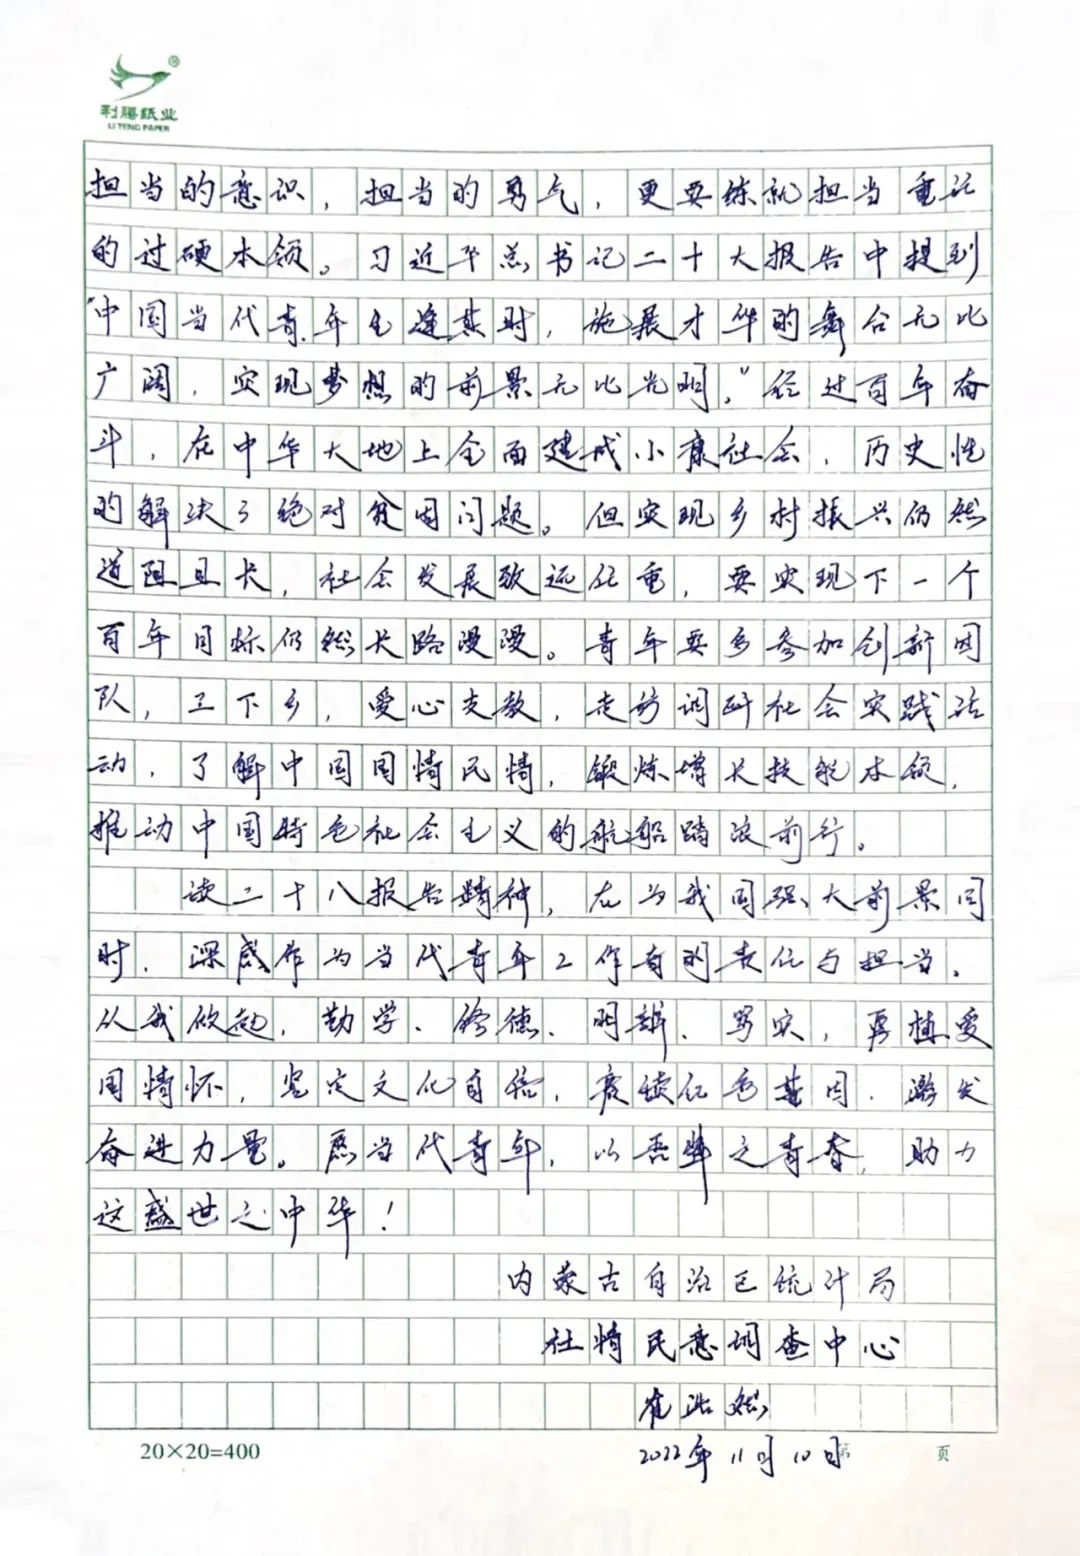 利腾纸业
LI TENG PAPER
担当的意识，担当的勇气，更要练就担当重托
的过硬本领。习近平总书记二十大报告中提到
“中国当代青年生逢其时，施展才华的舞台无比
广阔，实现梦想的前景无比光明。”经过百年奋
斗，在中华大地上全面建成小康社会，历史性
的解决了绝对贫困问题。但实现乡村振兴仍然
道阻且长，社会发展致远任重，要实现下一个
百年目标仍然长路漫漫。青年要多参加创新团
队，三下乡，爱心支教，走访调研社会实践活
动，了解中国国情民情，锻炼增长技能本领，
推动中国特色社会主义的航船踏波前行。
读二十八报告精神，在为我国强大前景同
时，深感作为当代青年工作者的责任与担当。
从我做起，勤学、修德、明辨、笃实，厚植爱
国情怀，坚定文化自信，赓续红色基因，激发
奋进力量。愿当代青年，以吾辈之青春，助力
这盛世之中华！
内蒙古自治区统计局
社情民意调查中心
崔浩然
2022年11月10日
20×20=400
第 页